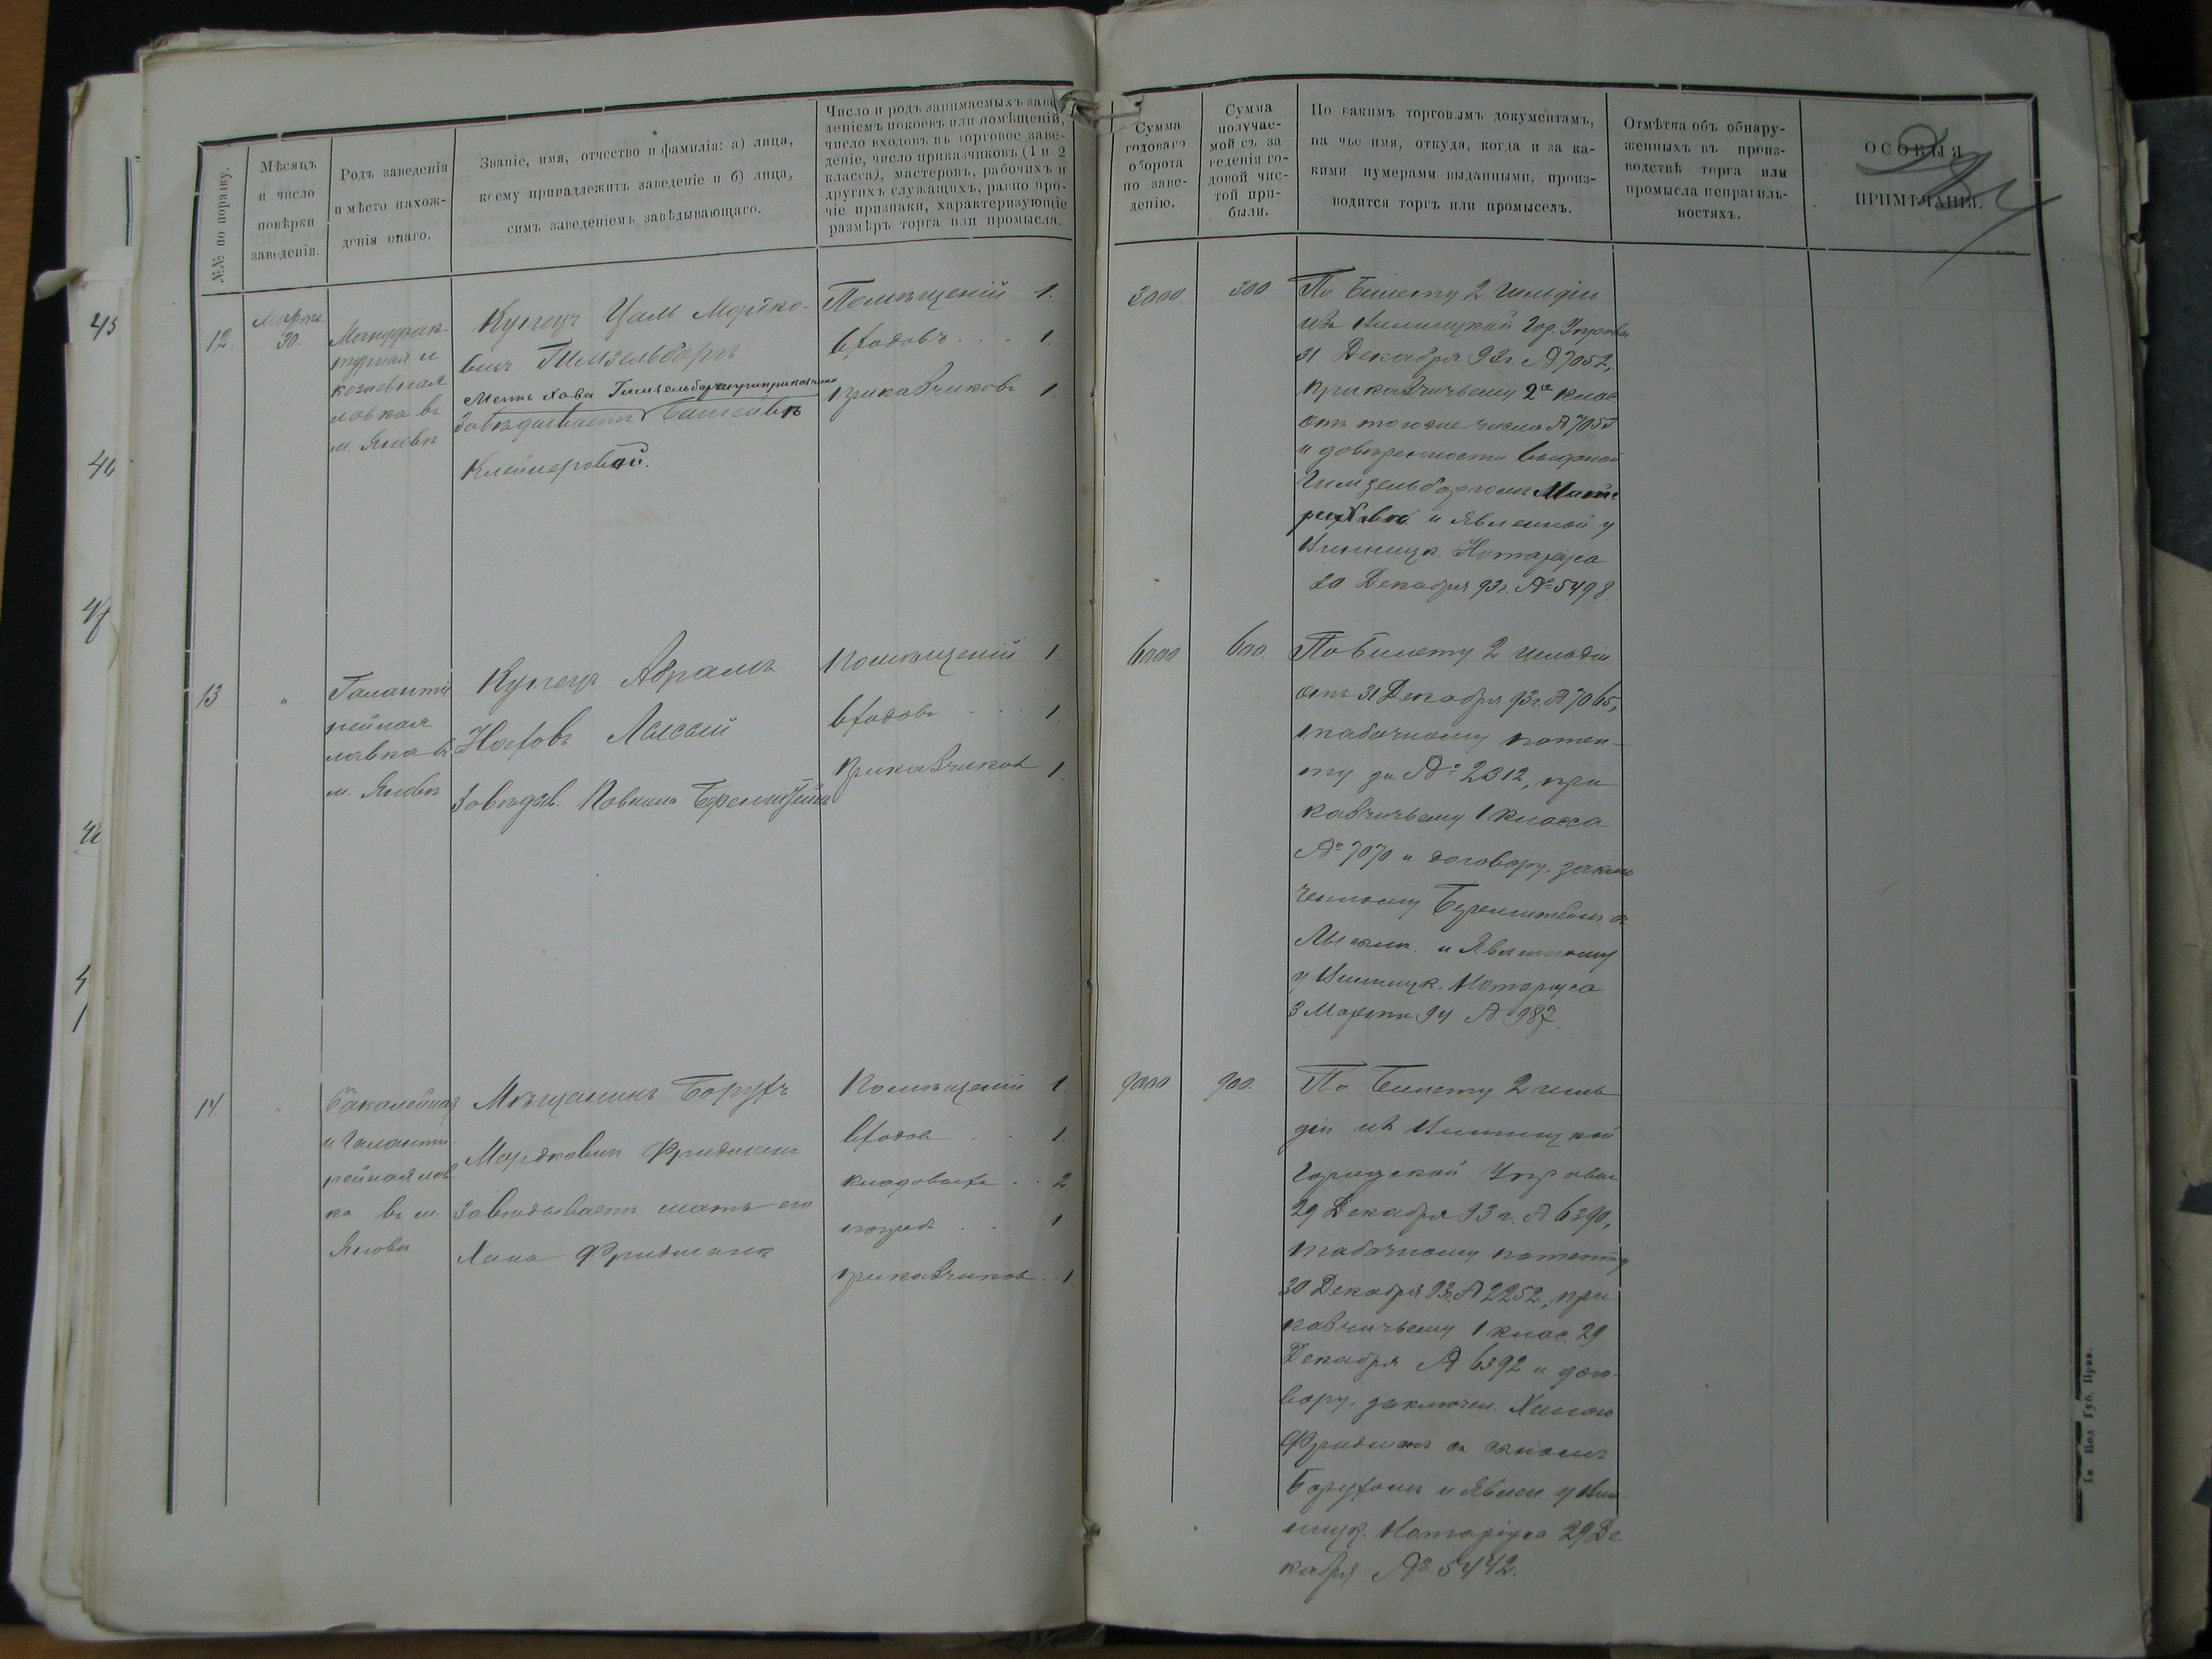 №№ по порядку.
Мѣсяцъ
и число
повѣрки
заведенія.
Родъ заведенія
и мѣсто нахож-
денія онаго.
Званіе, имя, отчество и фамилія: а) лица,
коему принадлежитъ заведеніе и б) лица,
симъ заведеніемъ завѣдывающаго.
Число и родъ занимаемыхъ заве-
деніемъ покоевъ или помѣщеній,
число входовъ въ торговое заве-
деніе, число приказчиковъ (1 и 2
класса), мастеровъ, рабочихъ и
другихъ служащихъ, равно про-
чіе признаки, характеризующіе
размѣръ торга или промысла.
Сумма
годоваго
оборота
по заве-
денію.
Сумма
получае-
мой съ за
веденія го-
довой чис-
той при-
были.
По какимъ торговымъ документамъ,
на чье имя, откуда, когда и за ка-
кими нумерами выданными, произ-
водится торгъ или промыселъ.
Отмѣтка объ обнару-
женныхъ въ произ-
водствѣ торга или
промысла неправиль-
ностяхъ.
ОСОБЫЯ
ПРИМѢЧАНІЯ.
12.
Марта
30.
Мануфак-
турная и
кожевная
лавка въ
м. Яновѣ
Купецъ Цаль Мортко-
вичъ Гимзельбергъ
Мать Хава
Завѣдываетъ
Клейнеровой.
Помѣщеній 1.
входовъ . . . 1.
приказчиковъ 1.
3000
300.
По билету 2 гильдіи
изъ Винницкой Гор. Управы
31 Декабря 93 г. № 7052,
приказчичьему 2го клас.
отъ того же числа № 7053
и довѣренности выданной
Гимзельбергомъ Мате-
ри Хавѣ и явленной у
Винницк. Нотаріуса
30 Декабря 93 г. № 5498.
13
"
Галанте-
рейная
лавка въ
м. Яновѣ
Купецъ Абрамъ
Носовъ
Завѣдыв.
помѣщеній 1.
входовъ . . . 1.
приказчиковъ 1.
6000
600.
По билету 2 гильдіи
отъ 31 Декабря 93 г. № 7065,
табачному патен-
ту за № 2312, при
казчичьему 1 класса
№ 7070 и договору, заклю
ченному Беренштейномъ съ
и явленному
у Винницк. Нотаріуса
3 Марта 94 № 987.
14
"
Бакалейная
и галанте-
рейная лав
ка въ м.
Яновѣ
Мѣщанинъ Борухъ
Мордковичъ Фридманъ
завѣдываетъ мать его
Хана Фридманъ
помѣщеній 1.
входовъ . . . 1.
кладовыхъ . . 2
погреб. . . 1
приказчиковъ . . 1
9000
900.
По билету 2 гиль
діи изъ Винницкой
Городской Управы
29 Декабря 93 г. № 6390,
табачному патенту
30 Декабря 93 г. № 2252, при
казчичьему 1 клас. 29
Декабря № 6392 и дого-
вору, заключен. Ханою
Фридманъ съ сыномъ
Борухомъ и явлен. у Вин-
ницк. Нотаріуса 29 Де
кабря № 5442.
45
46
Тип. Под. Губ. Прав.